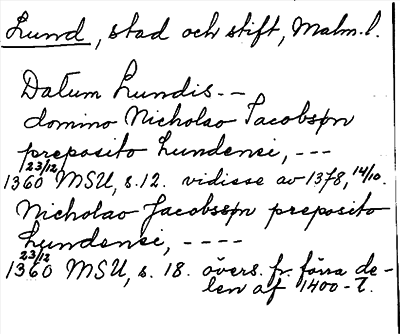 Lund, stad och stift, Malm.l.
Datum Lundis. --
domino Nicholao Jacobsson
preposito Lundensi, ---
23/12
1360 MSU, s.12. vidisse av 1378, 14/10.
Nicholao Jacobsson preposito
Lundensi, ----
23/12
1360 MSU, s. 18. övers. fr. förra de-
len af 1400-t.